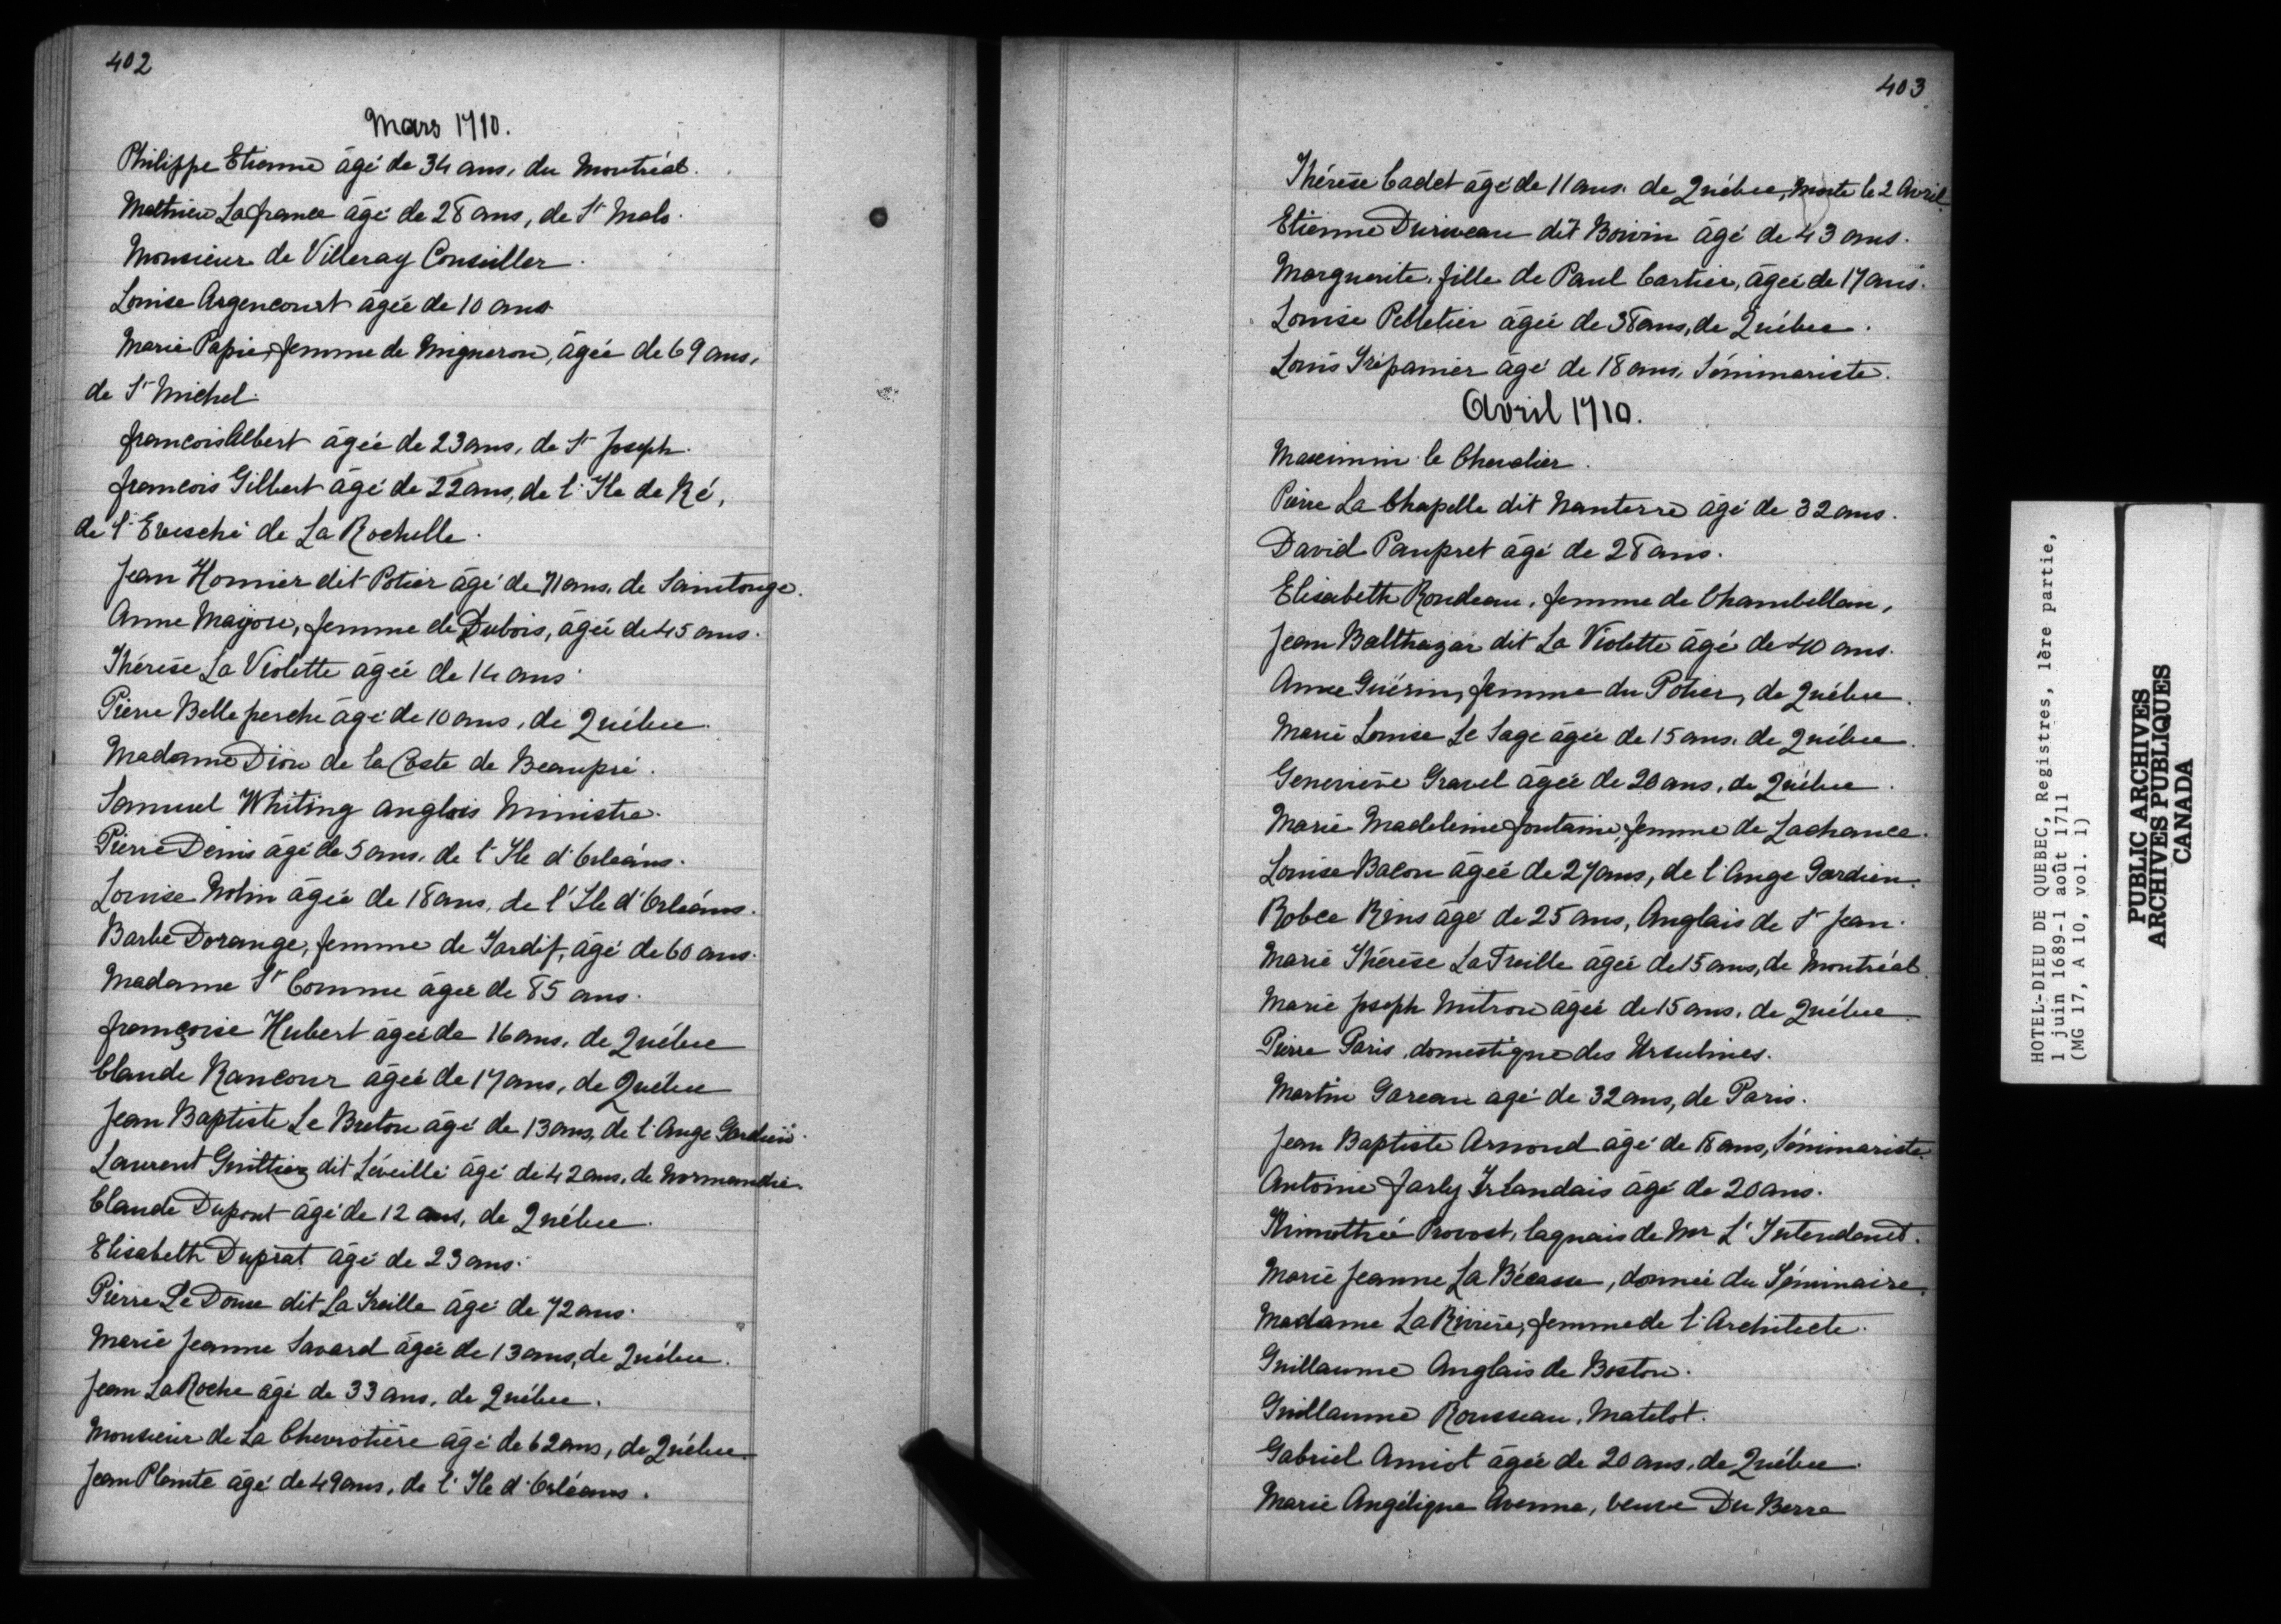 402
Mars 1710.
Philippe Etienne âgé de 34 ans, du Montréal.
Mathieu Lafrance âgé de 28 ans, de St Malo.
Monsieur de Villeray Conseiller.
Louise Argencourt âgée de 10 ans
Marie Papie, femme de Migneron, âgée de 69 ans,
de St Michel.
francois Albert âgée de 23 ans, de St Joseph.
francois Gilbert âgé de 22 ans, de l'Ile de Ré,
de l'Evesché de La Rochelle.
Jean Homier dit Potier âgé de 71 ans, de Saintonge.
Anne Mayou, femme de Dubois, âgée de 45 ans.
Thérèse La Violette âgée de 14 ans
Pierre Belleperche âgé de 10 ans, de Québec.
Madame Dion de la Coste de Beaupré.
Samuel Whiting anglois Ministre.
Pierre Denis âgé de 5 ans, de l'Ile d'Orléans.
Louise Nolin âgée de 18 ans, de l'Ile d'Orléans.
Barbe Dorange, femme de Tardif, âgé de 60 ans.
Madame St Comme âgée de 85 ans.
françoise Hubert âgée de 16 ans, de Québec
Claude Rancour âgée de 17 ans, de Québec
Jean Baptiste Le Breton âgé de 13 ans, de l'Ange Gardien.
Laurent Guittier dit Léveillé âgé de 42 ans, de Normandie.
Claude Dupont âgé de 12 ans, de Québec.
Elisabeth Duprat âgé de 23 ans.
Pierre Le Doux dit La Treille âgé de 72 ans.
Marie Jeanne Savard âgée de 13 ans, de Québec.
Jean LaRoche âgé de 33 ans, de Québec.
Monsieur de La Chevrotière âgé de 62 ans, de Québec.
Jean Plante âgé de 49 ans, de l'Ile d'Orléans.
403
Thérèse Cadet âgé de 11 ans, de Québec, Morte le 2 Avril
Etienne Duriveau dit Boivin âgé de 43 ans.
Marguerite, fille de Paul Cartier, âgée de 17 ans.
Louise Pelletier âgée de 38 ans, de Québec.
Louis Trépanier âgé de 18 ans, Séminariste.
Avril 1710.
Maximin le Chevalier.
Pierre La Chapelle dit Nanterre âgé de 32 ans.
David Paupret âgé de 28 ans.
Elisabeth Rondeau, femme de Chambellan,
Jean Balthazar dit La Violette âgé de 40 ans.
Anne Guérin, femme du Potier, de Québec.
Marie Louise Le Sage âgée de 15 ans, de Québec.
Geneviève Gravel âgée de 20 ans, de Québec.
Marie Madeleine fontaine, femme de Lachance.
Louise Bacon âgée de 27 ans, de l'Ange Gardien.
Robce Rins âgé de 25 ans, Anglais de St Jean.
Marie Thérèse LaTreille âgée de 15 ans, de Montréal.
Marie Joseph Mitron âgée de 15 ans, de Québec.
Pierre Paris, domestique des Ursulines.
Martin Gareau agé de 32 ans, de Paris.
Jean Baptiste Arnond âgé de 18 ans, Séminariste.
Antoine farly Irlandais âgé de 20 ans.
Thimothée Provost, laquais de Mr L'Intendant.
Marie Jeanne La Bécasse, donnée du Séminaire.
Madame LaRivière, femme de l'Architecte.
Guillaume Anglais de Boston.
Guillaume Rousseau, Matelot.
Gabriel Amiot âgée de 20 ans, de Québec.
Marie Angélique Avenne, veuve Du Berre
HOTEL-DIEU DE QUEBEC, Registres, 1ère partie,
1 juin 1689-1 août 1711
(MG 17, A 10, vol. 1)
PUBLIC ARCHIVES
ARCHIVES PUBLIQUES
CANADA